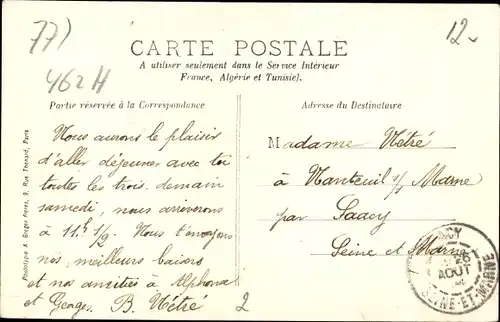 77)
462 H
12.-
CARTE POSTALE
A utiliser seulement dans le Service Intérieur
France, Algérie et Tunisie).
Partie réservée à la Correspondance
Nous aurons le plaisir
d'aller déjeuner avec toi
toutes les trois demain
samedi, nous arriverons
à 11h 1/2. Nous t'envoyons
nos meilleurs baisers
et nos amitiés à Alphonse
et Georges B. Nétré
2
Adresse du Destinataire
Madame Nétré
à Nanteuil s/ Marne
par Saacy
Seine et Marne
AOUT
SEINE-ET-MARNE
Phototypie A. Breger Frères, 9, Rue Thénard, Paris